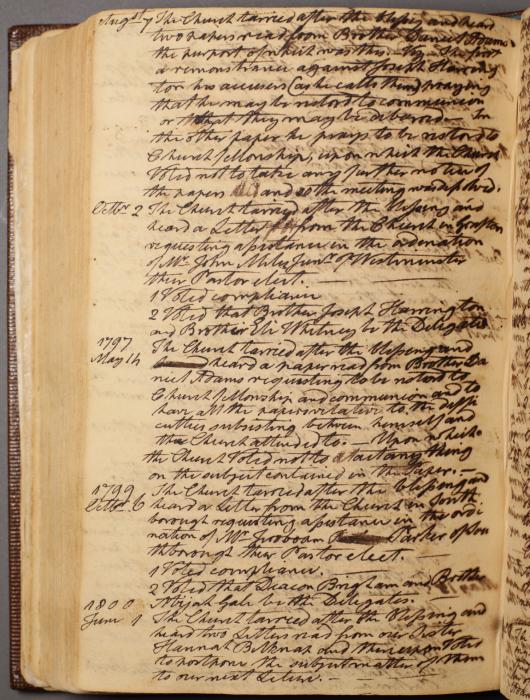 Augst 7 The Church tarried after the blessing and heard
two papers read from Brother Daniel Adams
the purport of which was this. Viz. The first
a remonstrance against Joseph Harring
ton his accusers (as he calls them) praying
that he may be restord to communion
or that they may be debarred. — In
the other paper he prays to be restord to
Church fellowship, upon which the Church
Voted not to take any further notice of
the papers and so the meeting was dissolved.
Octbr. 2 The Church tarried after the blessing and
heard a Letter from the Church in Grafton
requesting assistance in the ordination
of Mr. John Miles Junr. of Westminster
their Pastor elect.
1 Voted compliance
2 Voted that Brother Joseph Harrington
and Brother Eli Whitney be the Delegates
1797
May 14 The Church tarried after the blessing and
heard a paper read from Brother Da
niel Adams requesting to be restord to
Church fellowship and communion and to
have all the papers relative to the diffi
culties subsisting between himself and
the Church attended to. — Upon which
the Church Voted not to act any thing
on the subject contained in the Paper. —
1799 The Church tarried after the blessing and
Octbr. 6 heard a Letter from the Church in South
borough requesting assistance in the ordi
nation of Mr. Jeroboam Parker of Sou
thborough their Pastor elect. —
1 Voted compliance.
2 Voted that Deacon Brigham and Brother
Abijah Gale be the Delegates.
1800
June 1 The Church tarried after the blessing and
heard two Letters read from our Sister
Hannah Belknap and thereupon Voted
to postpone the subject matter of them
to our next Lecture. —